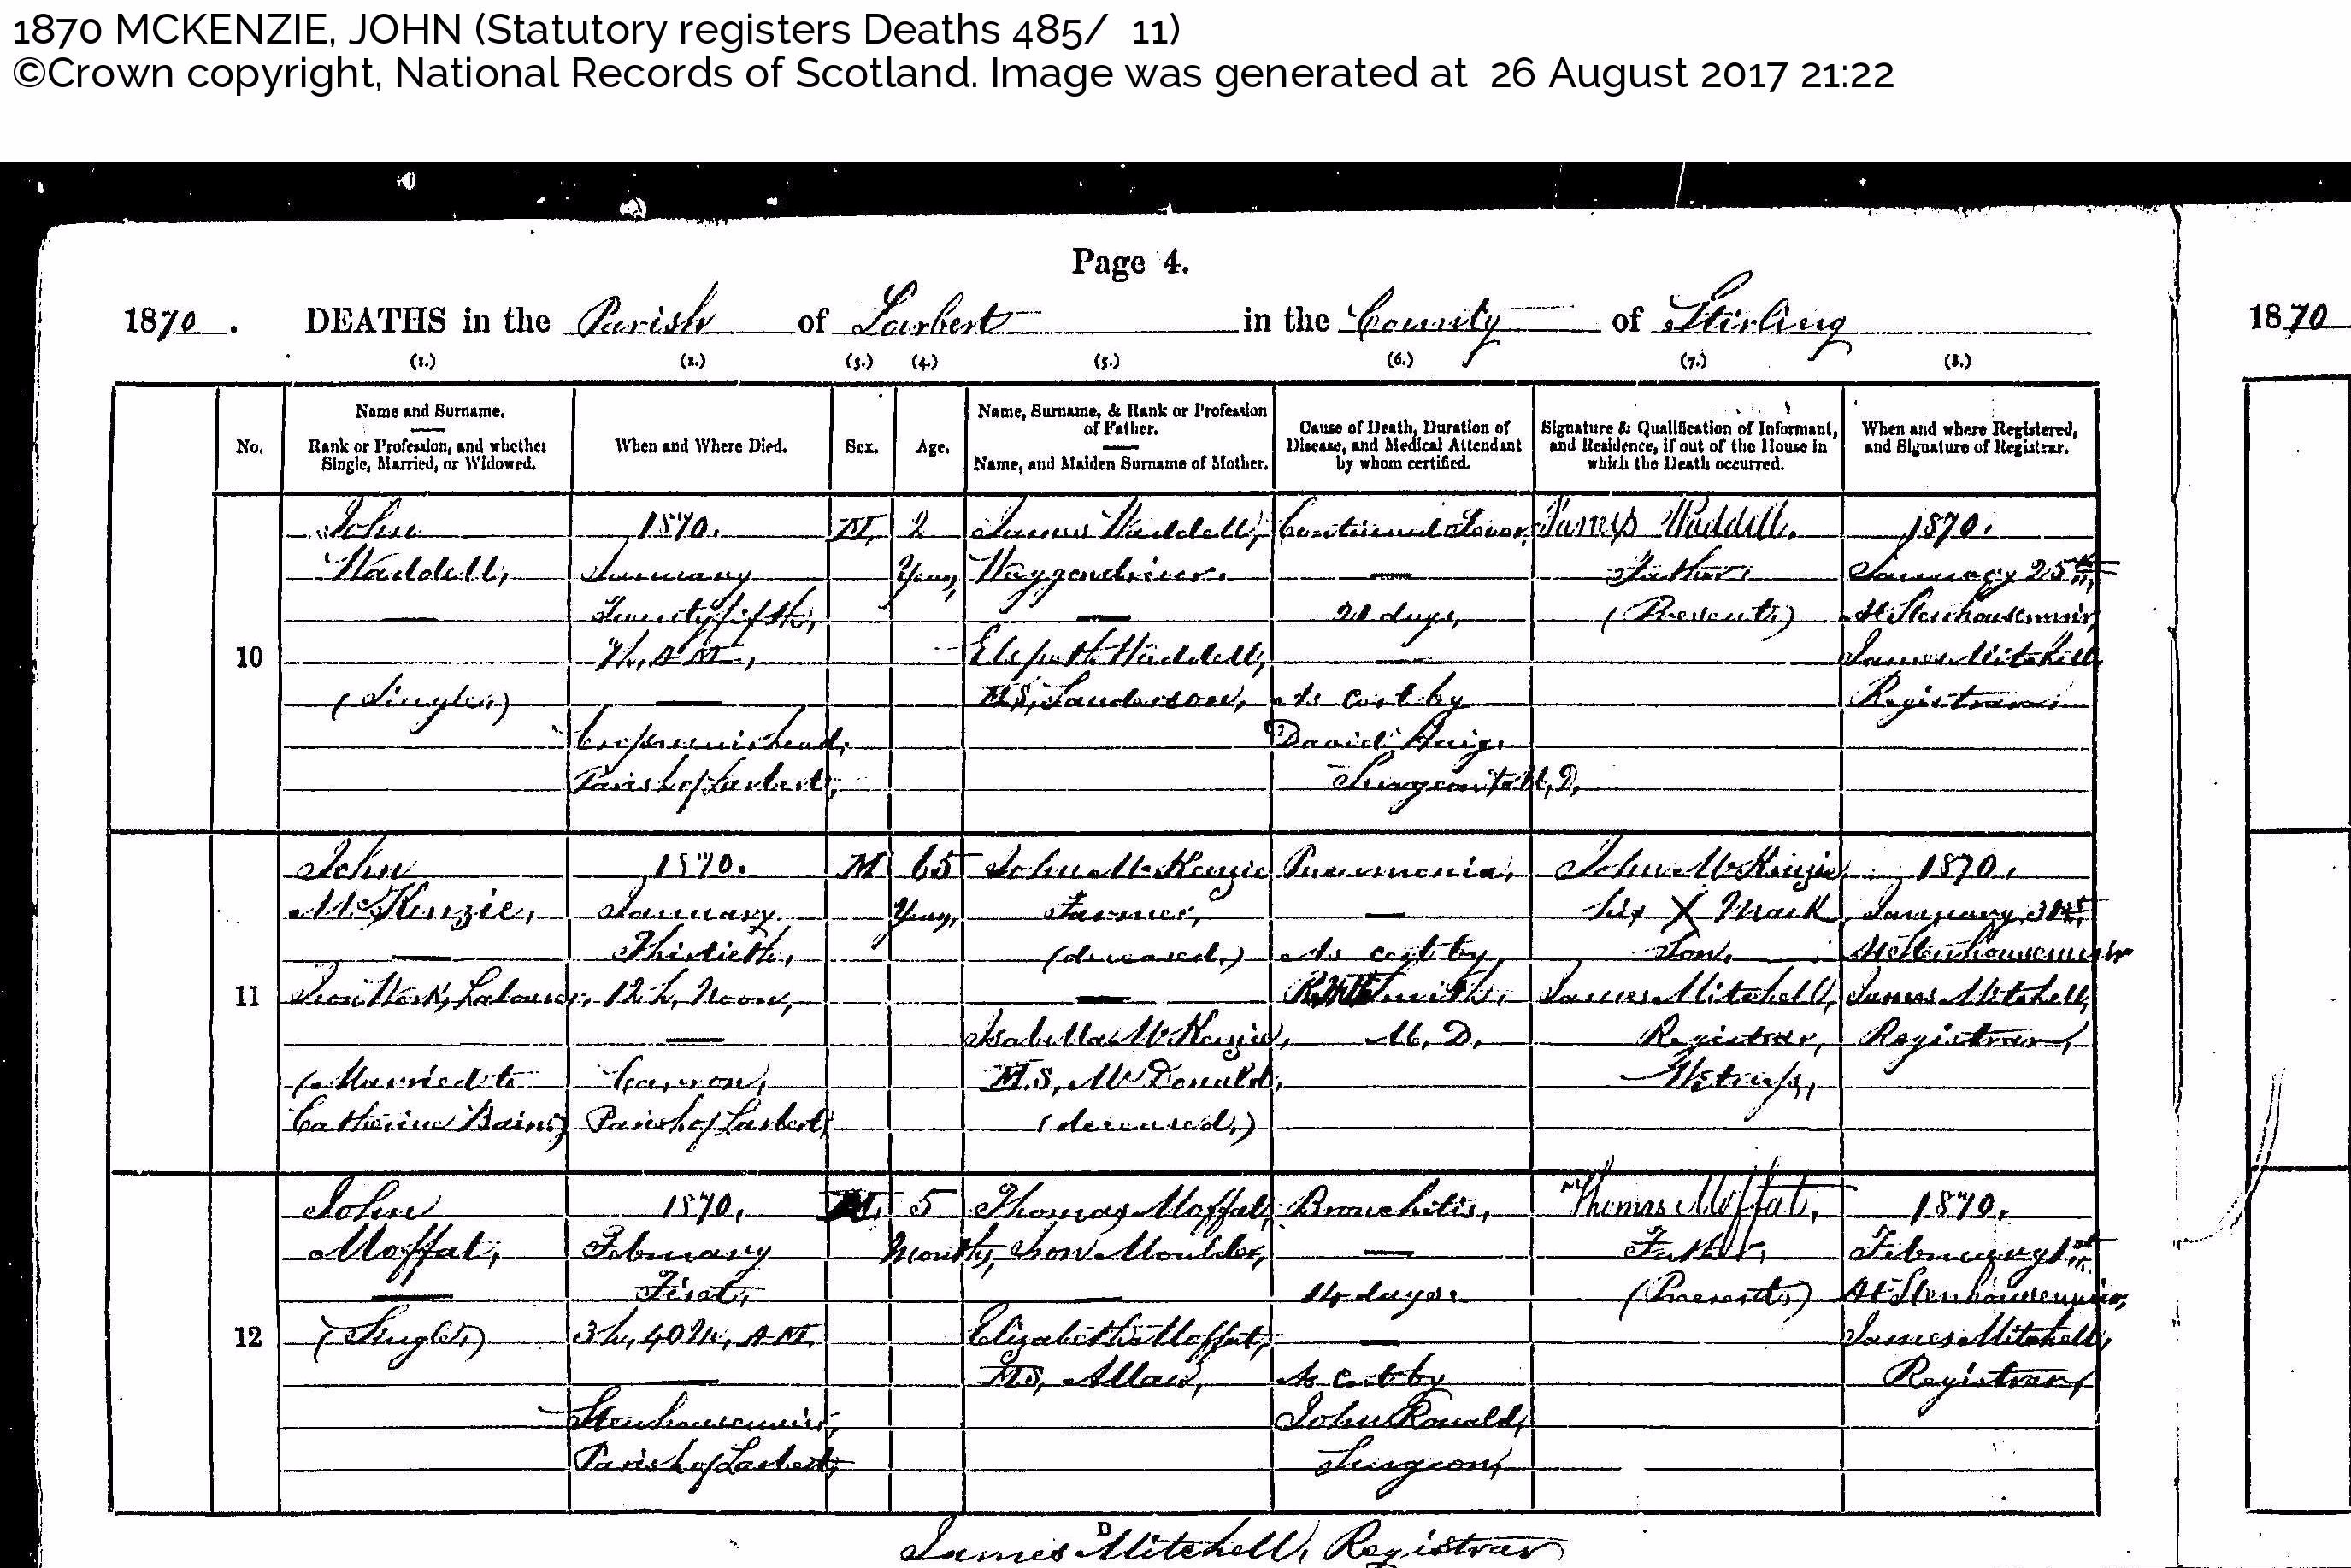 1870 MCKENZIE, JOHN (Statutory registers Deaths 485/ 11)
©Crown copyright, National Records of Scotland. Image was generated at 26 August 2017 21:22
Page 4.
1870. DEATHS in the Parish of Larbert in the County of Stirling
1870
(1.) (2.) (3.) (4.) (5.) (6.) (7.) (8.)
No.
Name and Surname.
Rank or Profession, and whether
Single, Married, or Widowed.
When and Where Died.
Sex.
Age.
Name, Surname, & Rank or Profession
of Father.
Name, and Maiden Surname of Mother.
Cause of Death, Duration of
Disease, and Medical Attendant
by whom certified.
Signature & Qualification of Informant,
and Residence, if out of the House in
which the Death occurred.
When and where Registered,
and Signature of Registrar.
10
John
Waddell,
(Single,)
1870.
January
Twenty fifth,
7h, A M,
Parish of Larbert,
M,
2
Years,
James Waddell,
Waggondriver.
Elspeth Waddell,
M.S, Sanderson,
Continued Fever,
21 days,
As cert by
David Haig,
Surgeon
James Waddell.
Father,
(Present,)
1870.
January 25th,
At Stenhousemuir,
James Mitchell,
Registrar,
11
John
McKenzie,
Iron Work, Labourer,
(Married to
Catherine Bain,)
1870.
January
Thirtieth,
12 h, Noon,
Carron,
Parish of Larbert,
M
65
Years,
John McKenzie
Farmer,
(deceased,)
Isabella McKenzie,
M.S, McDonald,
(deceased,)
Pneumonia,
As cert by
Smith,
M, D,
John McKenzie,
his X Mark
Son.
James Mitchell,
Registrar,
Witness,
1870,
January 31st,
At Stenhousemuir
James Mitchell,
Registrar,
12
John
Moffat,
(Single,)
1870,
February
First,
3h, 40M, A M.
Stenhousemuir,
Parish of Larbert,
M,
5
Months,
Thomas Moffat,
Iron Moulder,
Elizabeth Moffat,
M.S, Allan,
Bronchitis,
14 days.
As cert by
John Ronald,
Surgeon,
Thomas Moffat,
Father,
(Present,)
1870,
February 1st,
At Stenhousemuir,
James Mitchell,
Registrar,
James Mitchell, Registrar